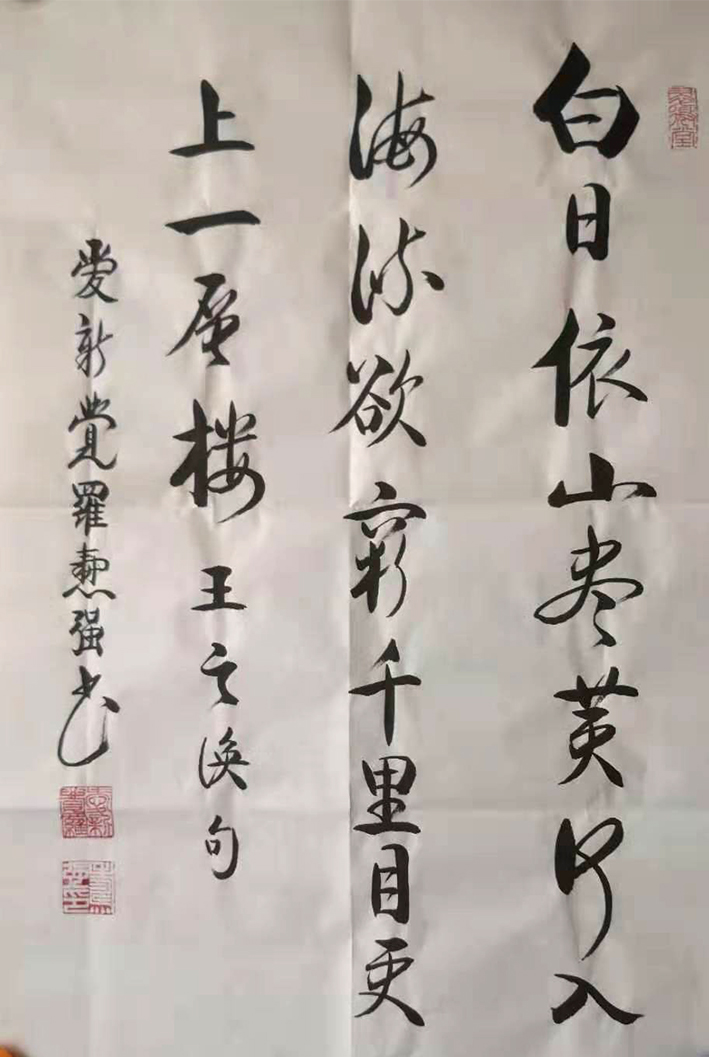 白日依山尽黄河入
海流欲穷千里目更
上一层楼 王之涣句
爱新觉罗懃强书